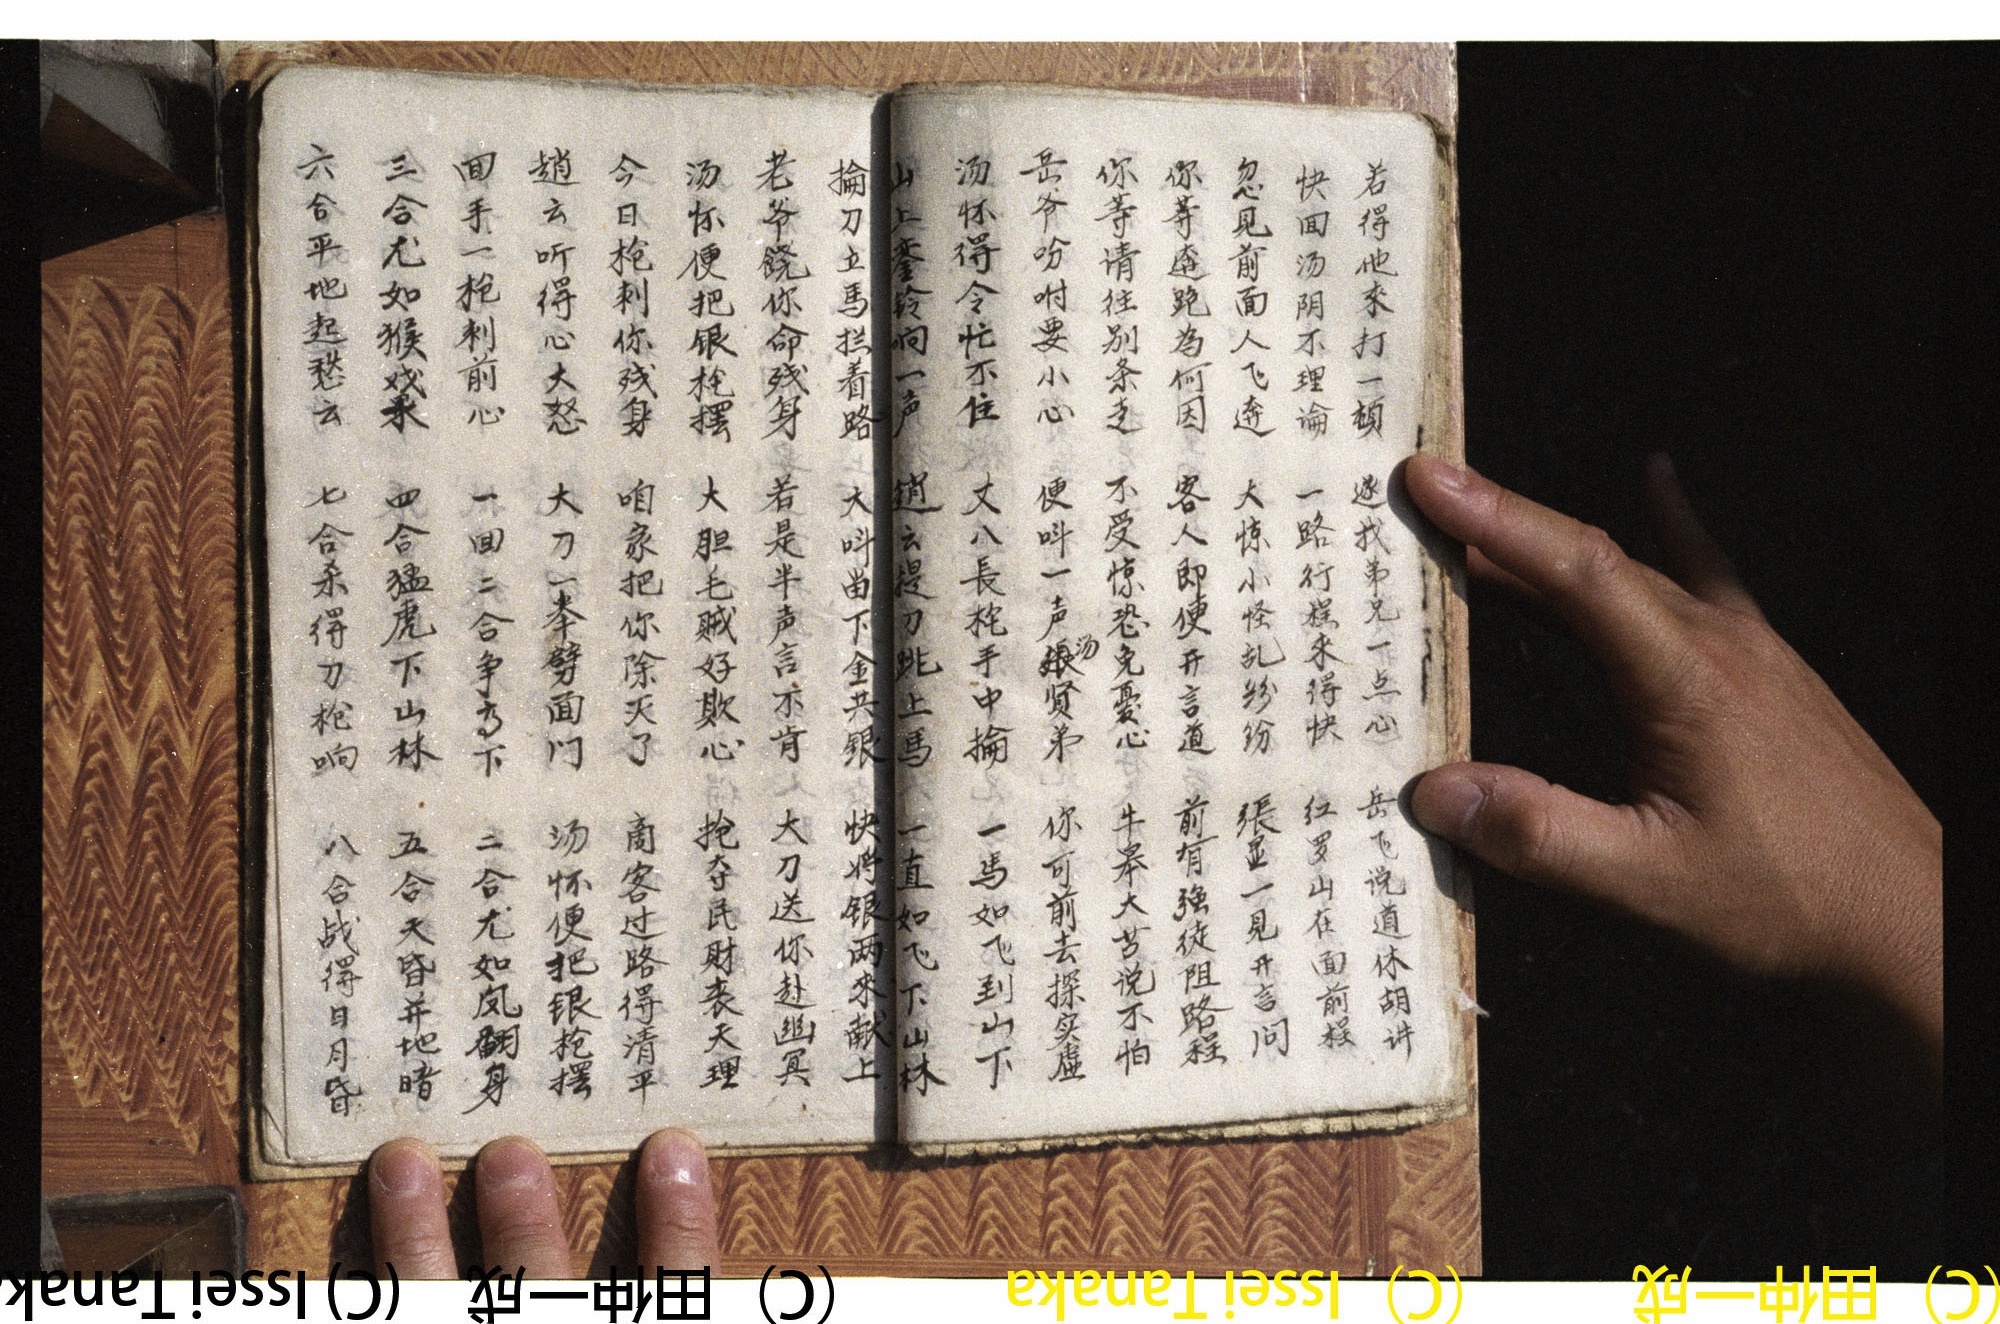 若得他來打一頓 遂我弟兄一点心 岳飞说道休胡讲
快回汤阴不理論 一路行程来得快 红罗山在面前程
忽见前面人飞奔 大惊小怪乱纷纷 張显一見开言问
你等奔跑為何因 客人即便开言道 前有强徒阻路程
你等请往别条走 不受惊恐免憂心 牛皋大笑说不怕
岳爷吩咐要小心 便叫一声張汤贤弟 你可前去探实虚
汤怀得令忙不住 丈八長枪手中掄 一馬如飞到山下
山上銮铃响一声 趙云提刀跳上馬 一直如飞下山林
掄刀立馬拦着路 大叫畄下金共银 快将银两來献上
老爷饶你命残身 若是半声言不肯 大刀送你赴幽冥
汤怀便把银枪摆 大胆毛贼好欺心 抢夺民財丧天理
今日枪刺你残身 咱家把你除灭了 商客过路得清平
趙云听得心大怒 大刀一举劈面门 汤怀便把银枪摆
回手一枪刺前心 一回二合争高下 二合尤如凤翻身
三合尤如猴戏承 四合猛虎下山林 五合天昏并地暗
六合平地起愁云 七合杀得刀枪响 八合战得日月昏
(C) Issei Tanaka (C) 田仲一成 (C) Issei Tanaka (C) 田仲一成 (C)